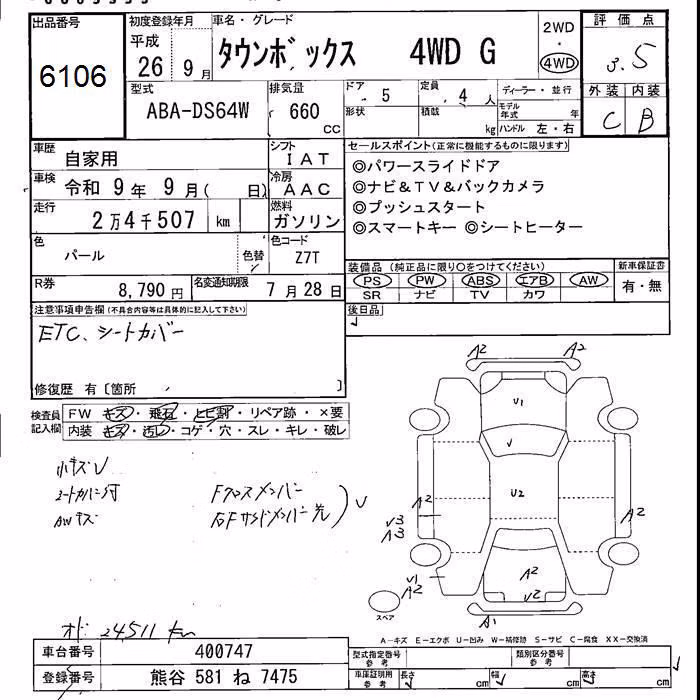 出品番号
6106
初度登録年月
平成
26年9月
車名・グレード
タウンボックス 4WD G
2WD
・
4WD
評価点
3.5
外装 内装
C B
型式
ABA-DS64W
排気量
660
cc
ドア
5
形状
定員
4人
積載
kg
ディーラー・並行
モデル年式 年
ハンドル 左・右
車歴
自家用
シフト
IAT
車検
令和 9年 9月( 日)
冷房
AAC
走行
2万4千507 km
燃料
ガソリン
色
パール
色替
色コード
Z7T
R券
8,790円
名変通知期限
7月28日
セールスポイント(正常に機能するものに限ります)
◎パワースライドドア
◎ナビ&TV&バックカメラ
◎プッシュスタート
◎スマートキー ◎シートヒーター
装備品 (純正品に限り○をつけてください)
PS PW ABS エアB AW
SR ナビ TV カワ
新車保証書
有・無
後日品
注意事項申告欄(不具合内容等は具体的に記入して下さい)
ETC、シートカバー
修復歴 有〔箇所 〕
検査員記入欄
FW キズ・飛石・ヒビ割・リペア跡・×要
内装 キズ・汚レ・コゲ・穴・スレ・キレ・破レ
小キズV
シートカバー付
AWキズ
Fクロスメンバー
右Fサイドメンバー先
V
A2 A2
V1
V
U2
A2
V3
A3
A2
V1
A2
A2
V2
A1
スペア
オド 24511 km
A-キズ E-エクボ U-凹み W-補修跡 S-サビ C-腐食 XX-交換済
車台番号 400747
登録番号 熊谷 581 ね 7475
型式指定番号
参考
類別区分番号
参考
車庫証明用
参考
長さ cm
幅 cm
高さ cm